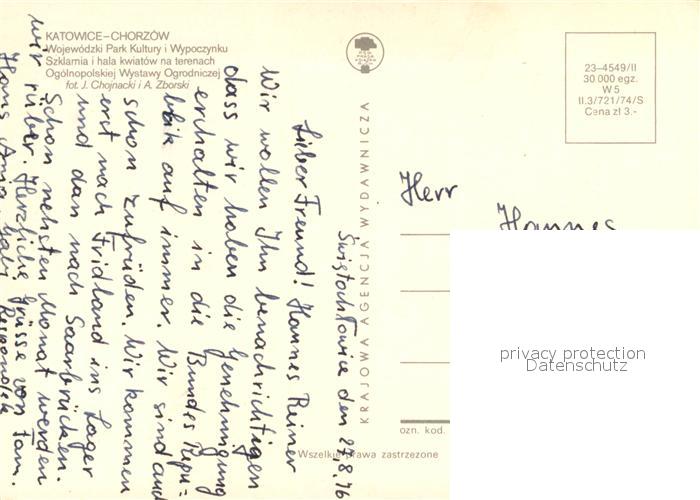 KATOWICE–CHORZÓW
Wojewódzki Park Kultury i Wypoczynku
Szklarnia i hala kwiatów na terenach
Ogólnopolskiej Wystawy Ogrodniczej
fot. J. Chojnacki i A. Zborski
23–4549/II
30 000 egz.
W 5
II.3/721/74/S
Cena zł 3.-
KRAJOWA AGENCJA WYDAWNICZA
Świętochłowice den 27,8,76
Lieber Freund! Hannes Reiner
Wir wollen Ihn benachrichtigen
dass wir haben die Genehmigung
erchalten in die Bundes Repu=
blik auf immer. Wir sind auch
schon zufrüden. Wir kommen
erst nach Fridland ins Lager
und dan nach Saarbrücken.
Schon nehsten Monat werden
wir rüber. Herzliche Grüsse von Fam.
Hans
Herr
Hannes
privacy protection
Datenschutz
ozn. kod.
Wszelkie prawa zastrzeżone